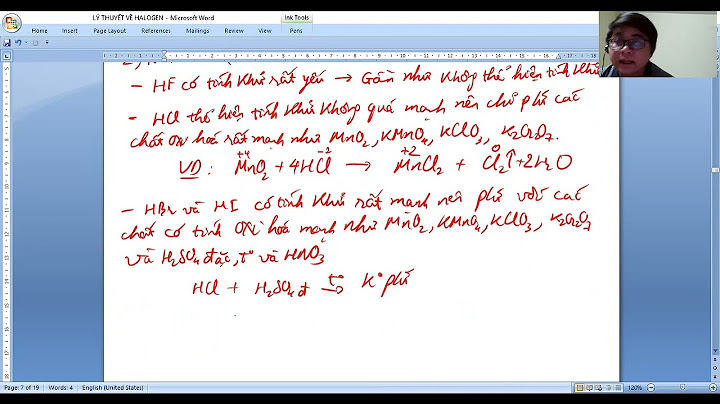 LÝ THUYẾT VỀ HALOGEN - Microsoft Word
Ink Tools
Home Insert Page Layout References Mailings Review View Pens
- HF có tính khử rất yếu → Gần như không thể hiện tính khử
- HCl thể hiện tính khử không quá mạnh nên chỉ pứ các
chất oxi hoá rất mạnh như MnO2, KMnO4, KClO3, K2Cr2O7.
VD: +4 -2 +2 0
MnO2 + 4HCl → MnCl2 + Cl2↑ + 2H2O
- HBr và HI có tính khử rất mạnh nên pứ với các
chất có tính oxi hóa mạnh như MnO2, KMnO4, KClO3, K2Cr2O7
và H2SO4 đặc, t° và HNO3
HCl + H2SO4 đ t° → K° pứ
Page: 7 of 19 Words: 4 English (United States) 120%